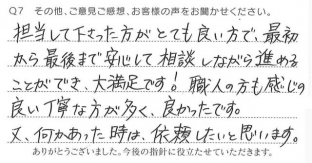 Q7 その他、ご意見ご感想、お客様の声をお聞かせください。
担当して下さった方がとても良い方で、最初
から最後まで安心して相談しながら進める
ことができ、大満足です！職人の方も感じの
良い丁寧な方が多く、良かったです。
又、何かあった時は、依頼したいと思います。
ありがとうございました。今後の指針に役立たせていただきます。